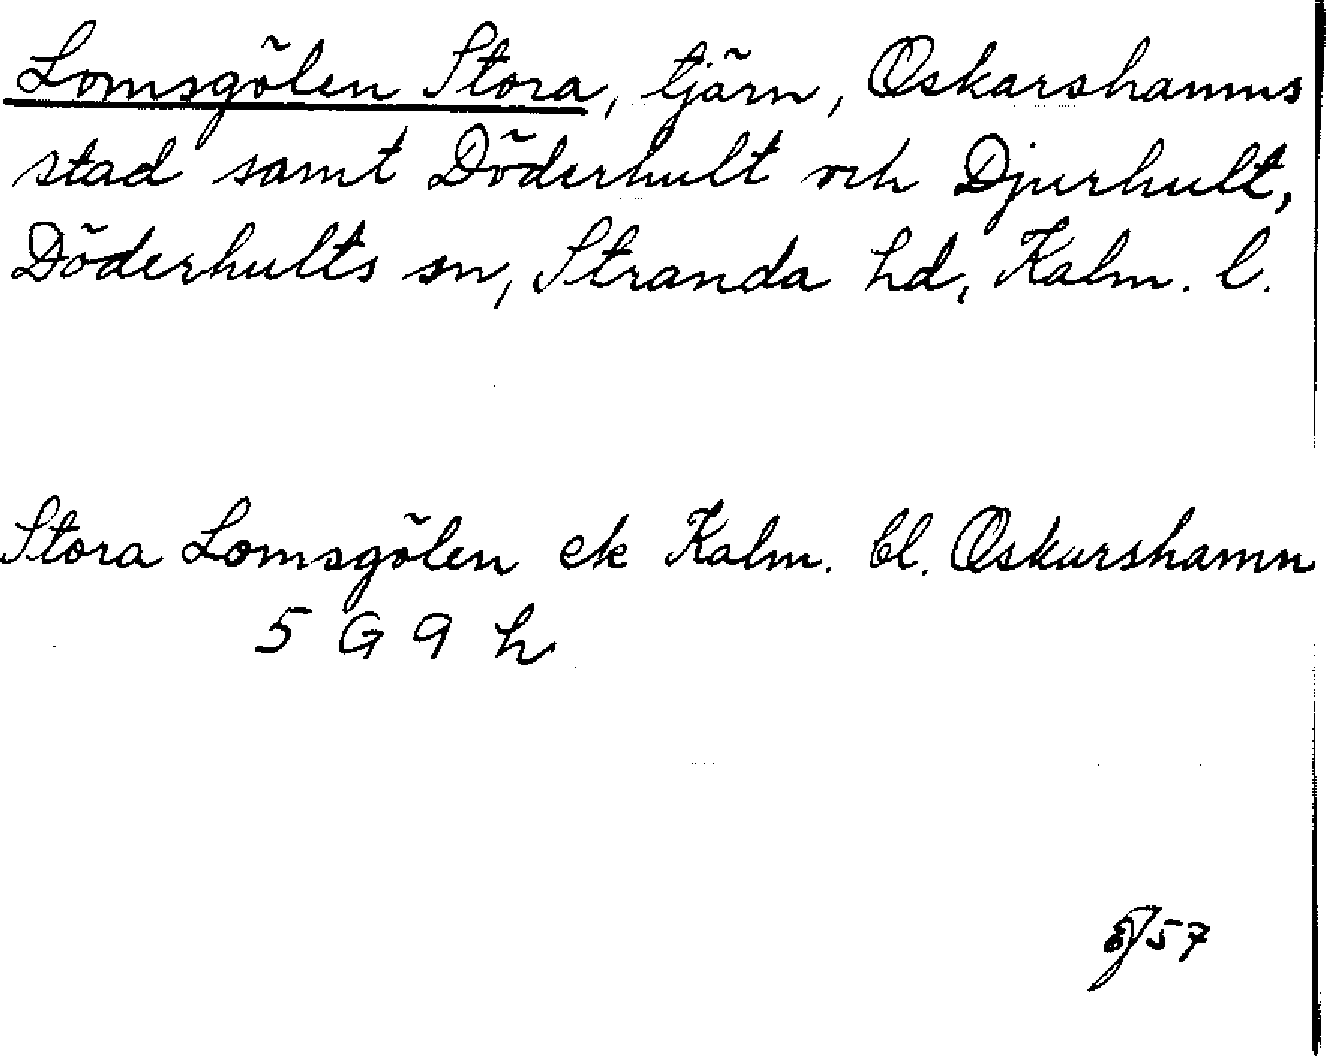 Lomsgölen Stora, tjärn, Oskarshamns
stad samt Döderhult och Djurhult,
Döderhults sn, Stranda hd, Kalm. l.
Stora Lomsgölen ek Kalm. bl. Oskarshamn
5 G 9 h
57